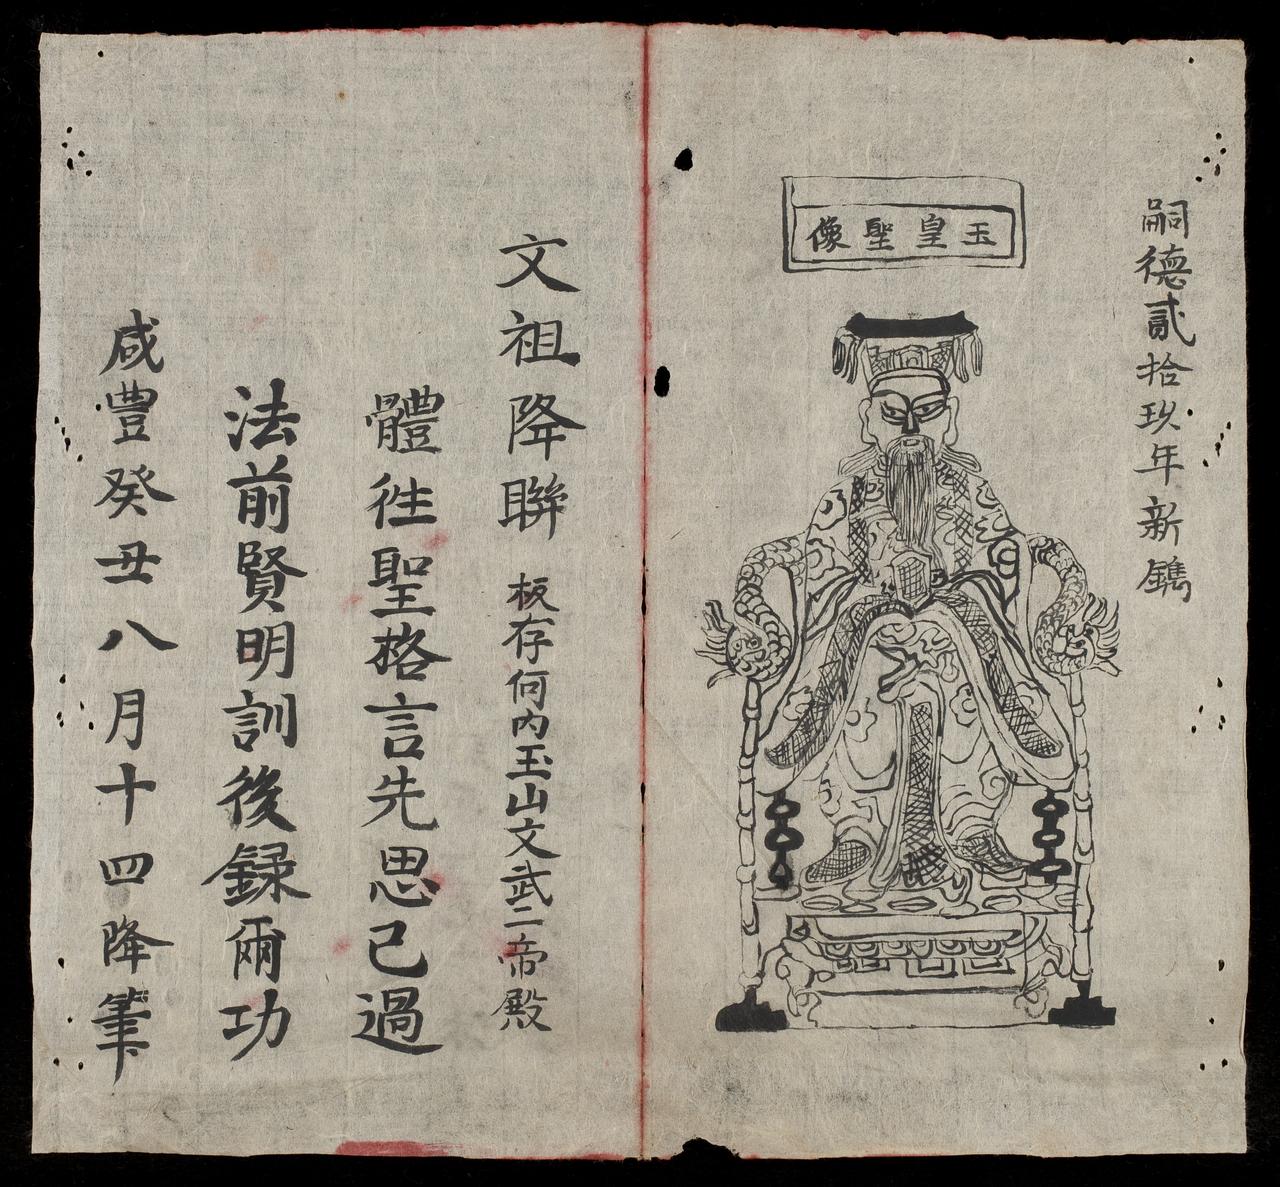 嗣德貳拾玖年新鐫
玉皇聖像
文祖降聯 板存何内玉山文武二帝殿
體徃聖格言先思已過
法前賢明訓後録爾功
咸豊癸丑八月十四降筆